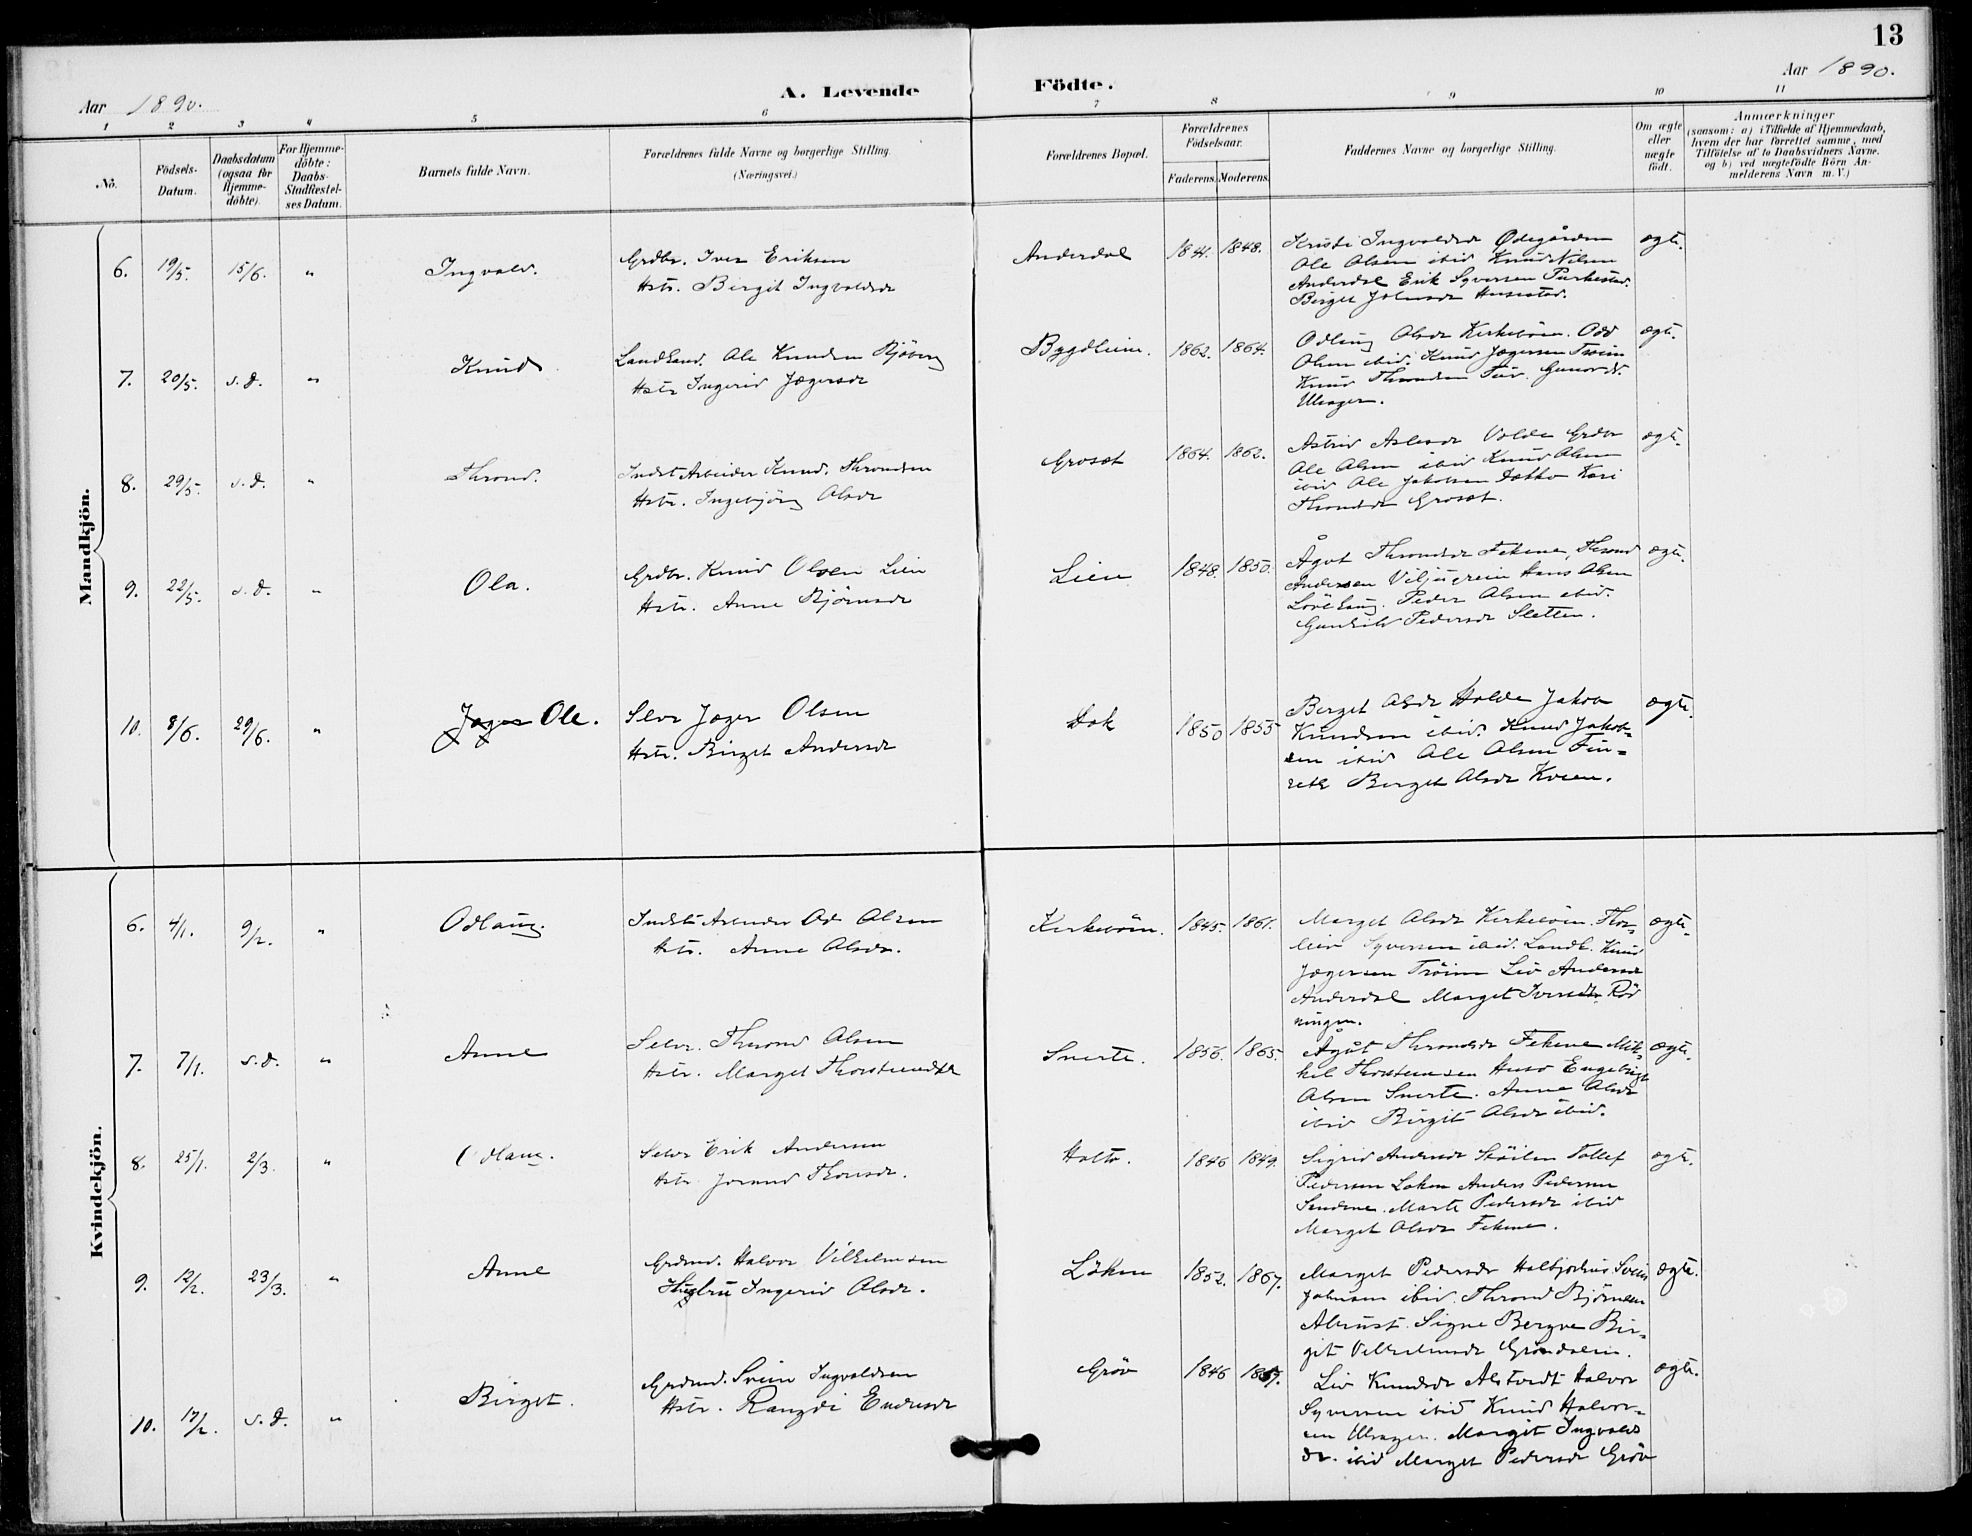 13
Aar 1890.
A. Levende
Födte.
Aar 1890.
1 2 3 4 5 6 7 8 9 10 11
No.
Födsels-
Datum.
Daabsdatum
(ogsaa for
Hjemme-
döbte).
For Hjemme-
döbte:
Daabs-
Stadfæstel-
ses Datum.
Barnets fulde Navn.
Forældrenes fulde Navne og borgerlige Stilling.
(Næringsvei.)
Forældrenes Bopæl.
Forældrenes
Födselsaar.
Faderens.
Moderens.
Faddernes Navne og borgerlige Stilling.
Om ægte
eller
uægte
födt.
Anmærkninger
(saasom: a) i Tilfælde af Hjemmedaab,
hvem der har forrettet samme, med
Tilföielse af to Daabsvidners Navne.
og b) ved uægtefödte Börn An-
melderens Navn m. V.)
Mandkjön.
6. 19/5. 15/6. " Ingvald.
Grdbr. Iver Eriksen
Hstr. Birgit Ingvaldsdr
Anderdal 1841. 1848.
Kristi Ingvaldsdr Ødegården
Ole Olsen ibid Knud Nilsen
Anderdal Erik Syversen
Birget Johnsdr
ægte.
7. 20/5. s.d. " Knud
Landhand. Ole Knudsen Bjöberg
Hstr Ingerid Jægersdr
Bygdheim. 1862. 1864.
Odlaug Olsdr Kirkeböen. Odd
Olsen ibid. Knud Jægersen Tröim
Knud Throndsen Tuv. Gunvor
Ulsager.
ægte.
8. 29/5. s.d. " Thrond.
Indst Arbeider Knud. Throndsen
Hstr. Ingebjörg Olsdr
Groset 1864. 1862.
Astrid Aslesdr Volde Grdbr
Ole Olsen ibid Knud Olsen
ibid Ole Jakobsen Dokko Kari
Throndsdr Groset.
ægte.
9. 22/5. s.d. " Ola.
Grdbr. Knud Olsen Lien
Hstr. Anne Björnsdr
Lien 1848. 1850.
Ågot Throndsdr Fekene, Thrond
Andersen Viljugrein Hans Olsen
Peder Olsen ibid.
Gunhild Pedersdr Sletten.
ægte.
10. 8/6. 29/6. " Jæger Ole.
Selvr Jæger Olsen
Hstr. Birget Andersdr
Dok 1850 1855
Berget Olsdr Holde Jakob
Knudsen ibid. Knud Jakob-
sen ibid Ole Olsen Fin-
sett Berget Olsdr Kveen.
ægte.
Kvindekjön.
6. 4/1. 9/2. " Odlaug.
Indst Arbeider Od Olsen
Hstr. Anne Olsdr.
Kirkeböen. 1845. 1861.
Marget Olsdr Kirkeböen. Thor-
leiv Syversen ibid. Landh. Knud
Jægersen Tröim Liv Andersdr
Anderdal Marget Iversdr Röd
ningen.
ægte.
7. 7/1. s.d. " Anne
Selvr. Thrond Olsen
Hstr. Marget Thorsteinsdtr
Snerte. 1856. 1865.
Ågôt Throndsdr Fekene Mik-
kel Thorsteinsen Huso Engebrigt
Olsen Snerte. Anne Olsdr
ibid Birgit Olsdr ibid.
ægte.
8. 25/1. 2/3. " Odlaug.
Selvr Erik Andersen
Hstr Jorand Thorsdr.
Holto. 1846 1849.
Sigrid Andersdr Stöilen Tollef
Pedersen Loken Anders Pedersen
Sendene. Marte Pedersdr ibid
Marget Olsdr Fekene.
ægte.
9. 12/2. 23/3. " Anne
Grdmd. Halvor Vilhelmsen
Hustru Ingerid Olsdr.
Löken 1852. 1867.
Marget Pedersdr Halbjorhus Svein
Johnsen ibid. Thrond Björnsen
Alrust. Signe Bergve Bir-
git Vilhelmsdr Gröndalen.
ægte.
10. 17/2. s.d. " Birget.
Grdmd. Svein Ingvaldsen
Hstr. Rangdi Endresdr
Gröv 1846 1857.
Liv Knudsdr Halvor
Syversen ibid Knud Halvor-
sen Ulsager. Margit Ingvalds
dr. ibid Marget Pedersdr Gröv
ægte.